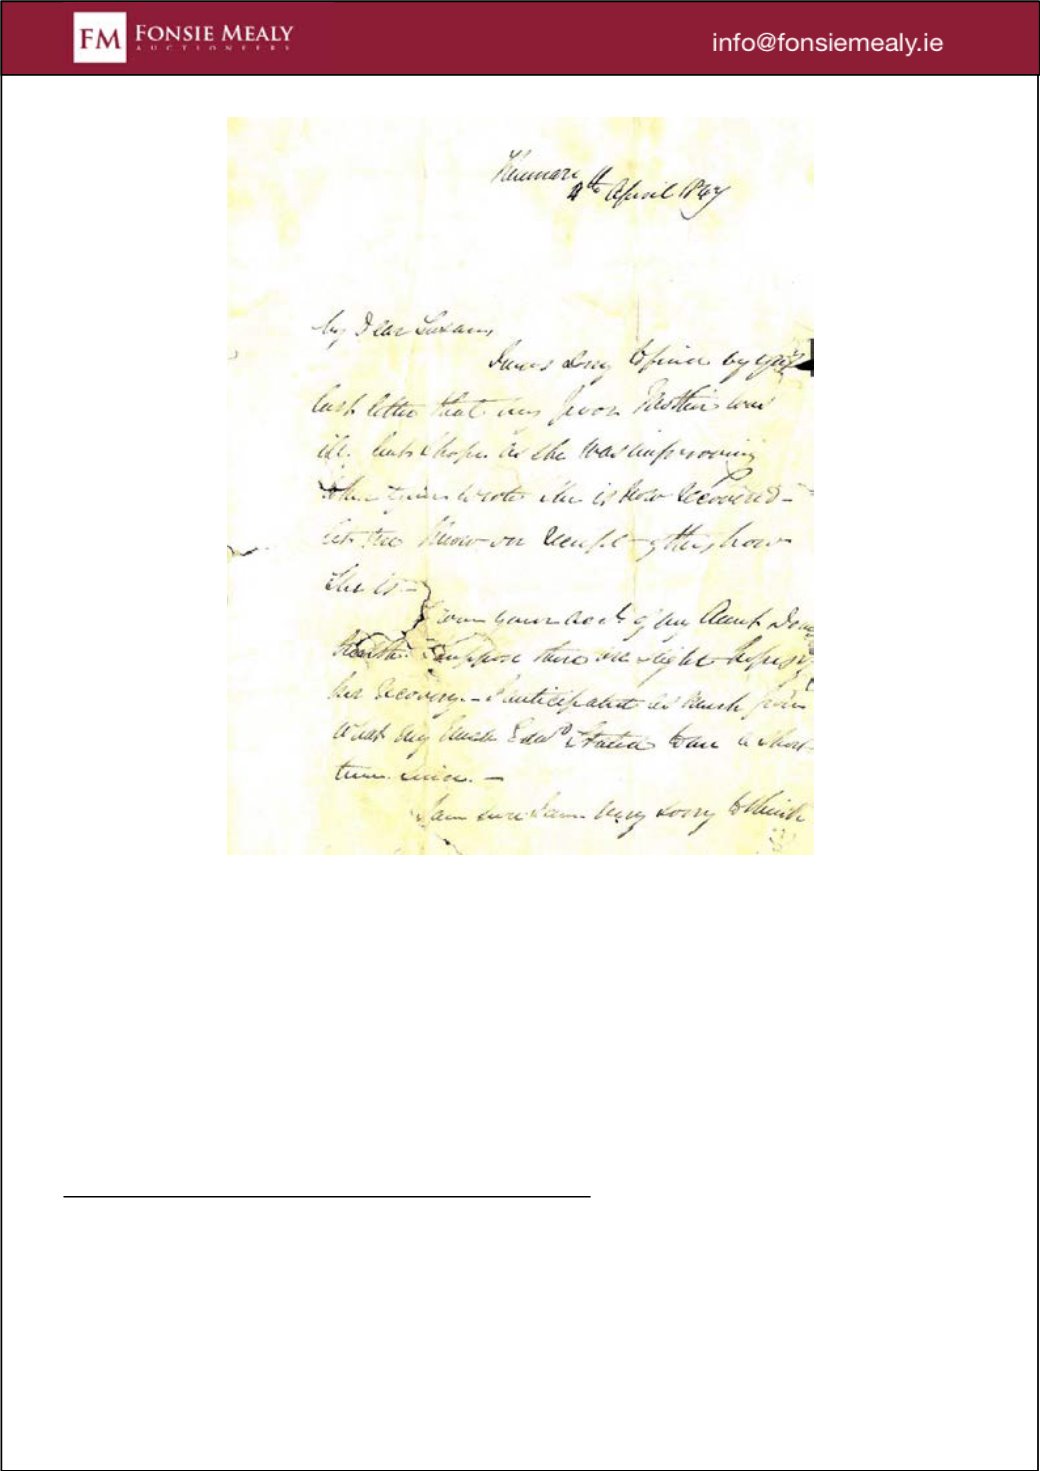 FM FONSIE MEALY
AUCTIONEERS
info@fonsiemealy.ie
Kenmare
4th April 1847
My Dear Susan,
I was sorry to find by your
last letter that my poor Mother was
ill. but I hope as she was improving
when you wrote she is now recovered –
let me know on receipt of this how
she is –
From your acct of my Aunt
health I suppose there are slight hopes of
her recovery. – I anticipated as much from
what my Uncle Edwd stated to me a short
time since. –
I am sure I am very sorry to think